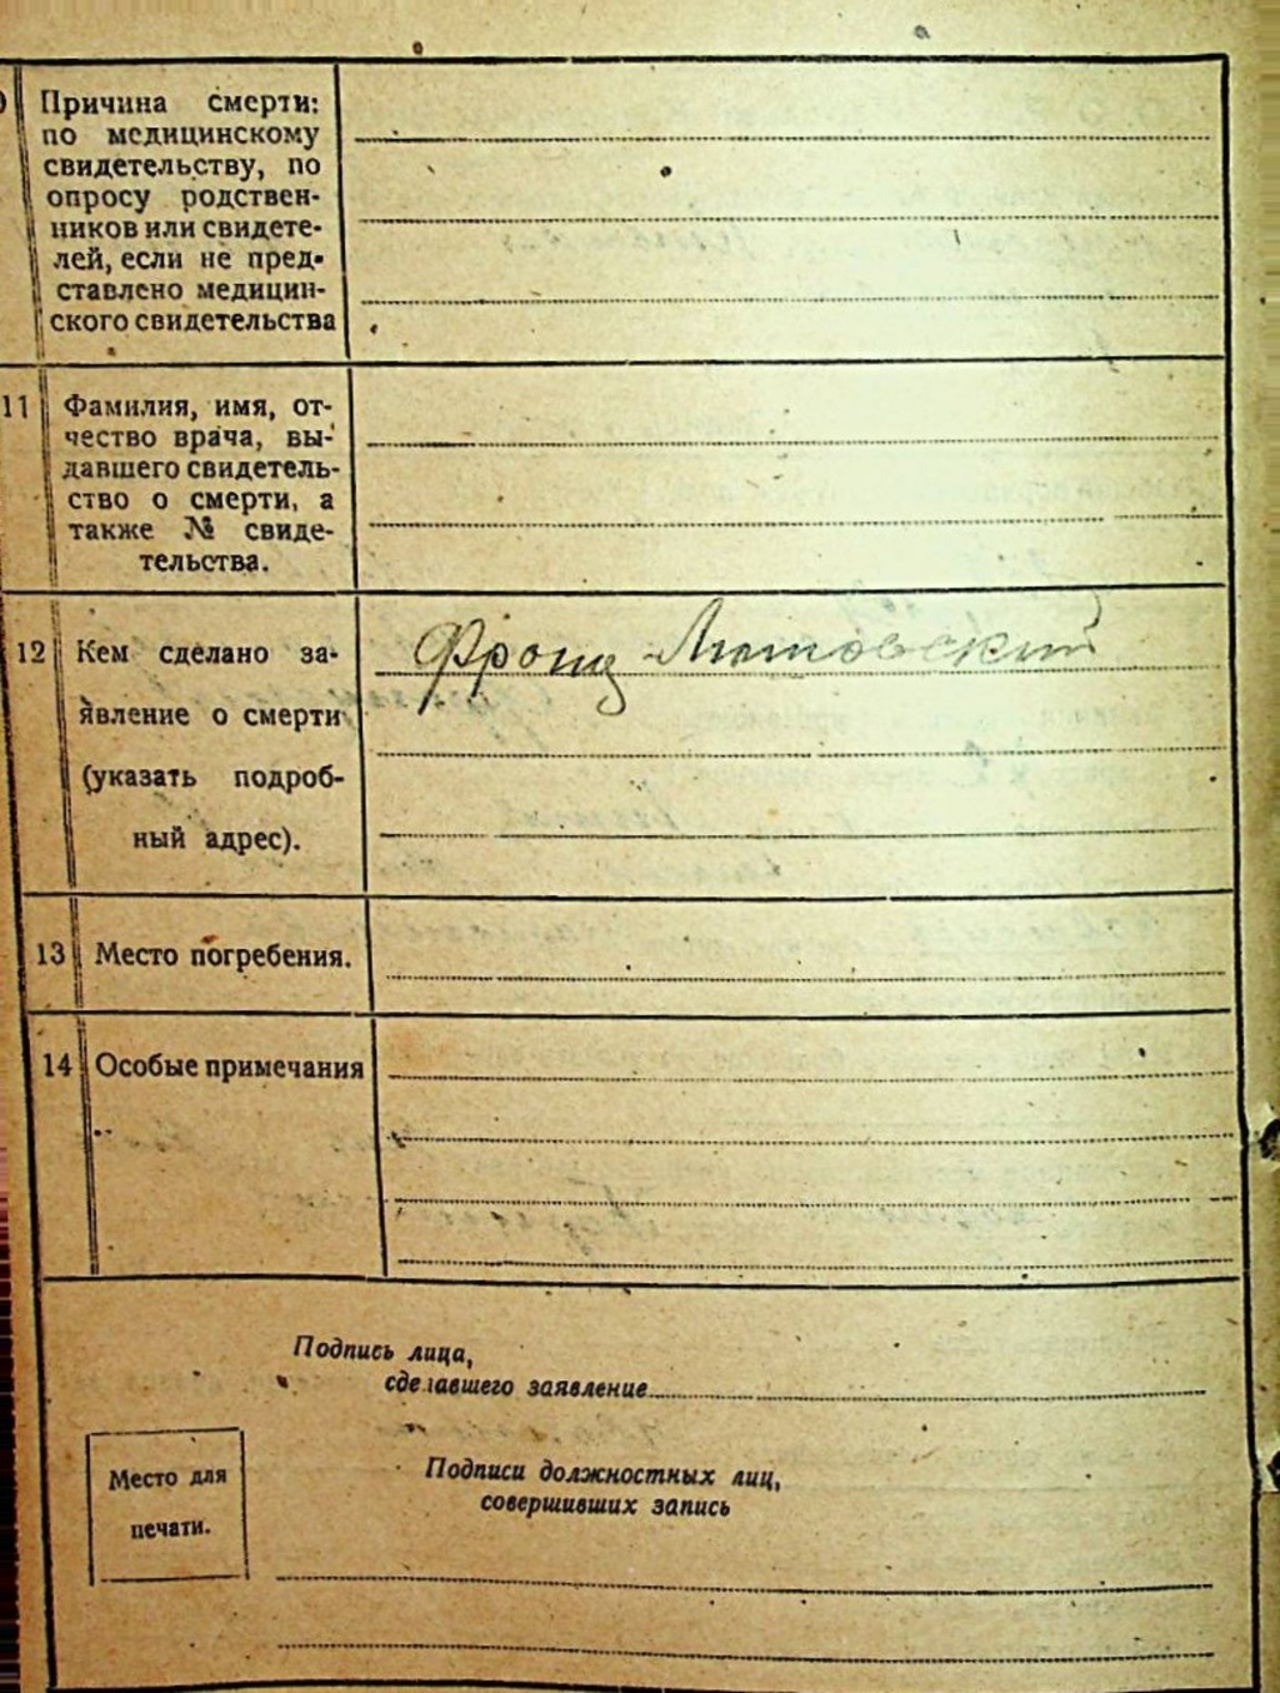 Причина смерти:
по медицинскому
свидетельству, по
опросу родствен-
ников или свидете-
лей, если не пред-
ставлено медицин-
ского свидетельства
11 Фамилия, имя, от-
чество врача, вы-
давшего свидетель-
ство о смерти, а
также № свиде-
тельства.
12 Кем сделано за-
явление о смерти
(указать подроб-
ный адрес).
Франц Литовский
13 Место погребения.
14 Особые примечания
Подпись лица,
сделавшего заявление
Место для
печати.
Подписи должностных лиц,
совершивших запись